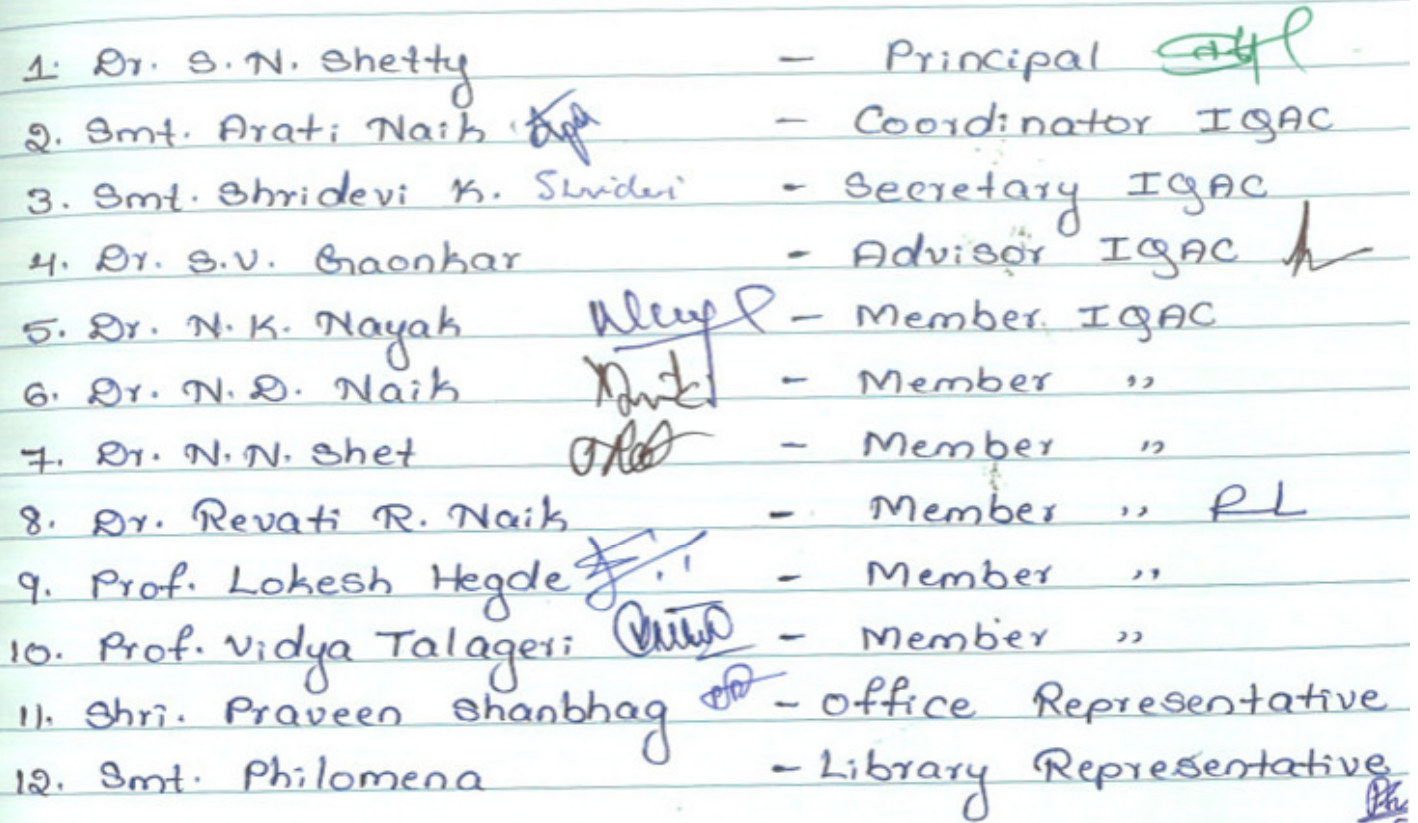 1. Dr. S. N. Shetty - Principal
2. Smt. Arati Naik - Coordinator IQAC
3. Smt. Shridevi K. Shridevi - Secretary IQAC
4. Dr. S.V. Gaonkar - Advisor IQAC
5. Dr. N.K. Nayak - Member IQAC
6. Dr. N.D. Naik - Member ,,
7. Dr. N.N. Shet - Member ,,
8. Dr. Revati R. Naik - Member ,,
9. Prof. Lokesh Hegde - Member ,,
10. Prof. Vidya Talageri - Member ,,
11. Shri. Praveen Shanbhag - Office Representative
12. Smt. Philomena - Library Representative